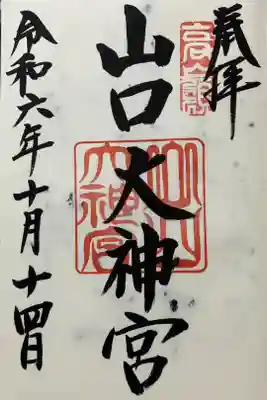 奉拝
山口大神宮
令和六年十月十四日